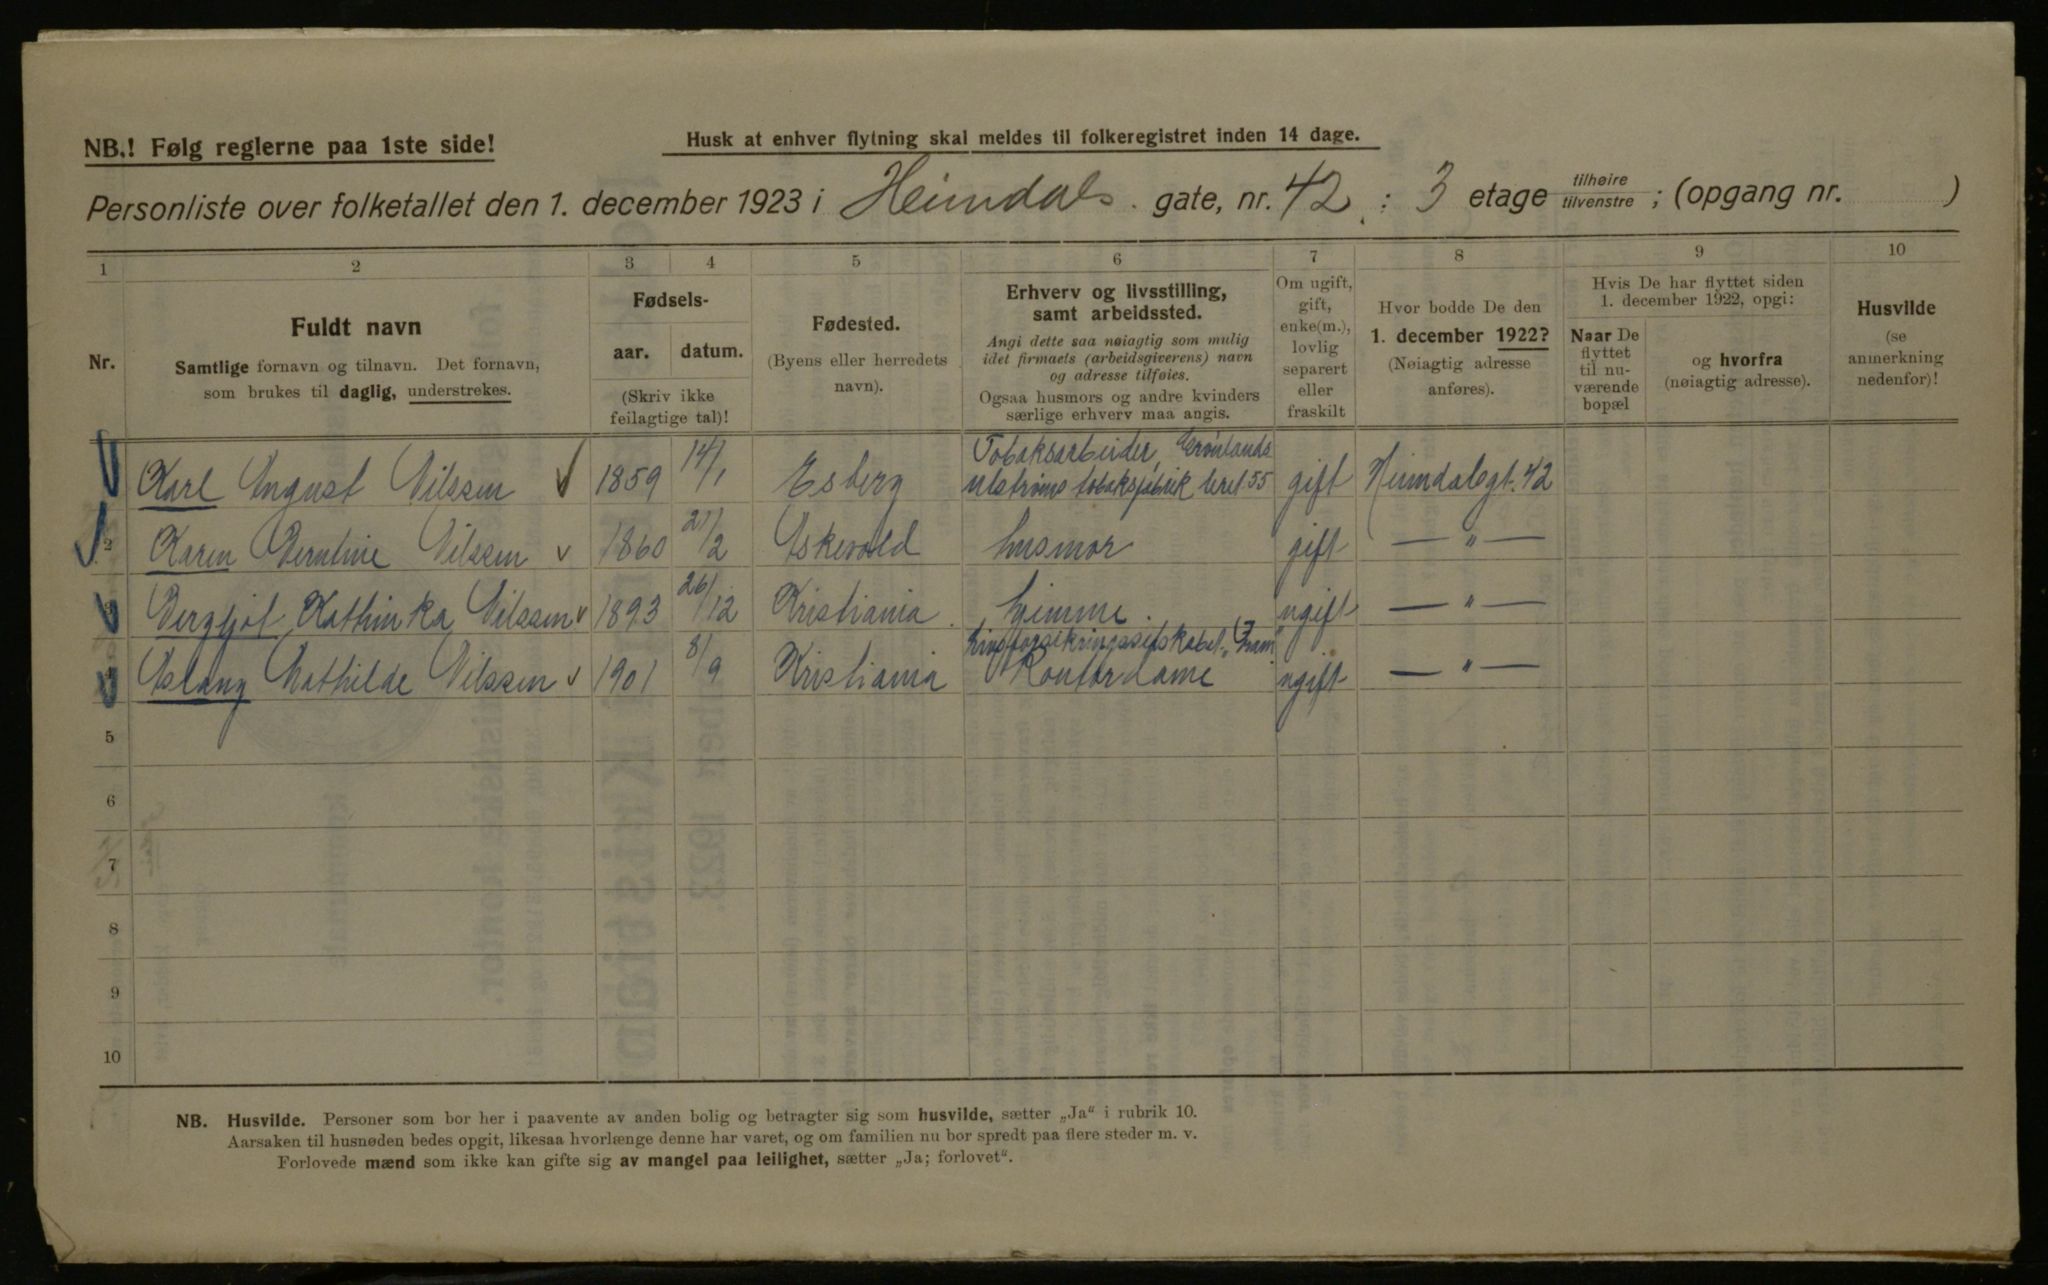 NB.! Følg reglerne paa 1ste side!
Husk at enhver flytning skal meldes til folkeregistret inden 14 dage.
Personliste over folketallet den 1. december 1923 i Heimdals gate, nr. 42 : 3 etage tilhøire tilvenstre ; (opgang nr. )
1 2 3 4 5 6 7 8 9 10
Nr.
Fuldt navn
Samtlige fornavn og tilnavn. Det fornavn,
som brukes til daglig, understrekes.
Fødsels-
aar. datum.
(Skriv ikke
feilagtige tal)!
Fødested.
(Byens eller herredets
navn).
Erhverv og livsstilling,
samt arbeidssted.
Angi dette saa nøiagtig som mulig
idet firmaets (arbeidsgiverens) navn
og adresse tilføies.
Ogsaa husmors og andre kvinders
særlige erhverv maa angis.
Om ugift,
gift,
enke(m.),
lovlig
separert
eller
fraskilt
Hvor bodde De den
1. december 1922?
(Nøiagtig adresse
anføres).
Hvis De har flyttet siden
1. december 1922, opgi:
Naar De
flyttet
til nu-
værende
bopæl
og hvorfra
(nøiagtig adresse).
Husvilde
(se
anmerkning
nedenfor)!
Karl August Nilssen 1859 14/1 Esberg Tobaksarbeider, Grønlands
tobaksfabrik leret 55 gift Heimdalsgt. 42
2 Karen Berntine Nilssen 1860 21/2 Askevold husmor gift — " —
3 Bergljot Kathinka Nilssen 1893 26/12 Kristiania hjemme. ugift — " —
4 Aslaug Mathilde Nilssen 1901 8/9 Kristiania Livsforsikringsselskabet „Fram"
Kontordame ugift — " —
5
6
7
8
9
10
NB. Husvilde. Personer som bor her i paavente av anden bolig og betragter sig som husvilde, sætter „Ja“ i rubrik 10.
Aarsaken til husnøden bedes opgit, likesaa hvorlænge denne har varet, og om familien nu bor spredt paa flere steder m. v.
Forlovede mænd som ikke kan gifte sig av mangel paa leilighet, sætter „Ja; forlovet“.